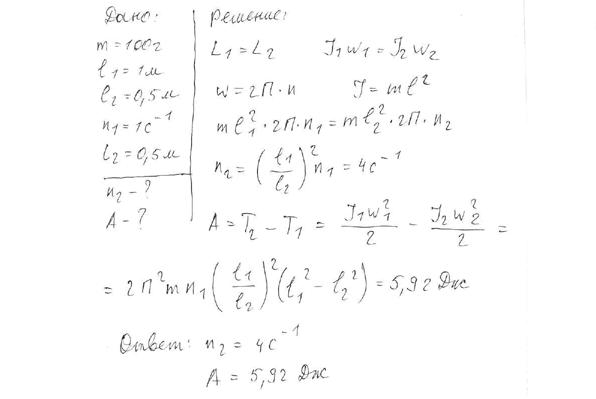 Дано:
m = 100г
l₁ = 1м
l₂ = 0,5м
n₁ = 1c⁻¹
l₂ = 0,5м
n₂ - ?
A - ?
Решение:
L₁ = L₂ J₁w₁ = J₂w₂
w = 2π·n J = ml²
ml₁²·2π·n₁ = ml₂²·2π·n₂
n₂ = (l₁/l₂)² n₁ = 4c⁻¹
A = T₂ - T₁ = J₁w₁²/2 - J₂w₂²/2 =
= 2π²mn₁(l₁/l₂)²(l₁² - l₂²) = 5,92 Дж
Ответ: n₂ = 4c⁻¹
A = 5,92 Дж